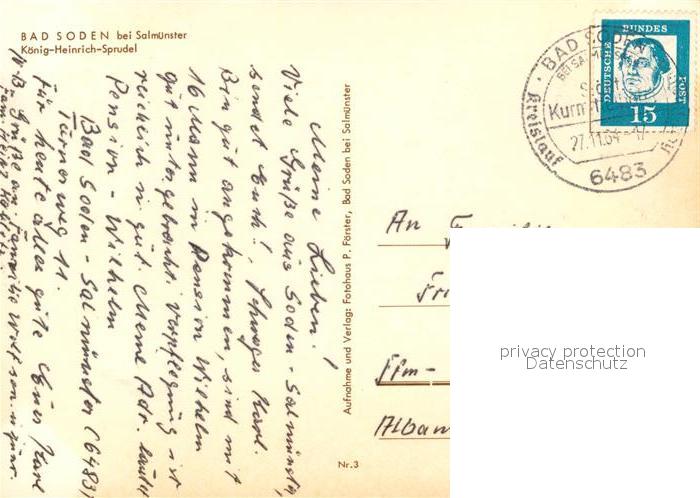 BAD SODEN bei Salmünster
König-Heinrich-Sprudel
Meine Lieben!
Viele Grüße aus Soden-Salmünster,
sendet Euch!, Schwager Karl.
Bin gut angekommen, sind mit
16 Mann in Pension Wilhelm
gut untergebracht. Verpflegung ist
reichlich u. gut. Meine Adr. lautet
Pension-Wilhelm
Bad Soden-Salmünster (6483)
weg 11.
Für heute alles gute Euer Karl
NB Grüße an Familie Wolf sen. u. jun.
Fam. Heinz
Aufnahme und Verlag: Fotohaus P. Förster, Bad Soden bei Salmünster
Nr. 3
BAD SODEN
BEI SALMÜNSTER
Kreislauf
27.11.64-17
6483
DEUTSCHE BUNDES POST
15
An Familie
Ffm-
privacy protection
Datenschutz